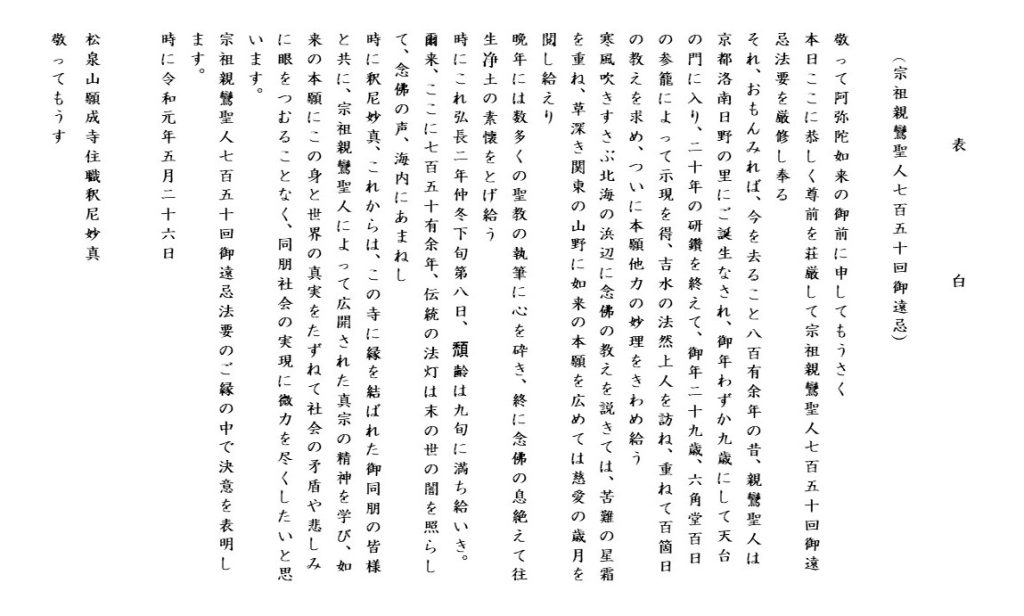 表白
(宗祖親鸞聖人七百五十回御遠忌)
敬って阿弥陀如来の御前に申してもうさく
本日ここに恭しく尊前を荘厳して宗祖親鸞聖人七百五十回御遠
忌法要を厳修し奉る
それ、おもんみれば、今を去ること八百有余年の昔、親鸞聖人は
京都洛南日野の里にご誕生なされ、御年わずか九歳にして天台
の門に入り、二十年の研鑽を終えて、御年二十九歳、六角堂百日
の参籠によって示現を得、吉水の法然上人を訪ね、重ねて百箇日
の教えを求め、ついに本願他力の妙理をきわめ給う
寒風吹きすさぶ北海の浜辺に念佛の教えを説きては、苦難の星霜
を重ね、草深き関東の山野に如来の本願を広めては慈愛の歳月を
閲し給えり
晩年には数多くの聖教の執筆に心を砕き、終に念佛の息絶えて往
生浄土の素懐をとげ給う
時にこれ弘長二年仲冬下旬第八日、頽齢は九旬に満ち給いき。
爾来、ここに七百五十有余年、伝統の法灯は末の世の闇を照らし
て、念佛の声、海内にあまねし
時に釈尼妙真、これからは、この寺に縁を結ばれた御同朋の皆様
と共に、宗祖親鸞聖人によって広開された真宗の精神を学び、如
来の本願にこの身と世界の真実をたずねて社会の矛盾や悲しみ
に眼をつむることなく、同朋社会の実現に微力を尽くしたいと思
います。
宗祖親鸞聖人七百五十回御遠忌法要のご縁の中で決意を表明し
ます。
時に令和元年五月二十六日
松泉山願成寺住職釈尼妙真
敬ってもうす